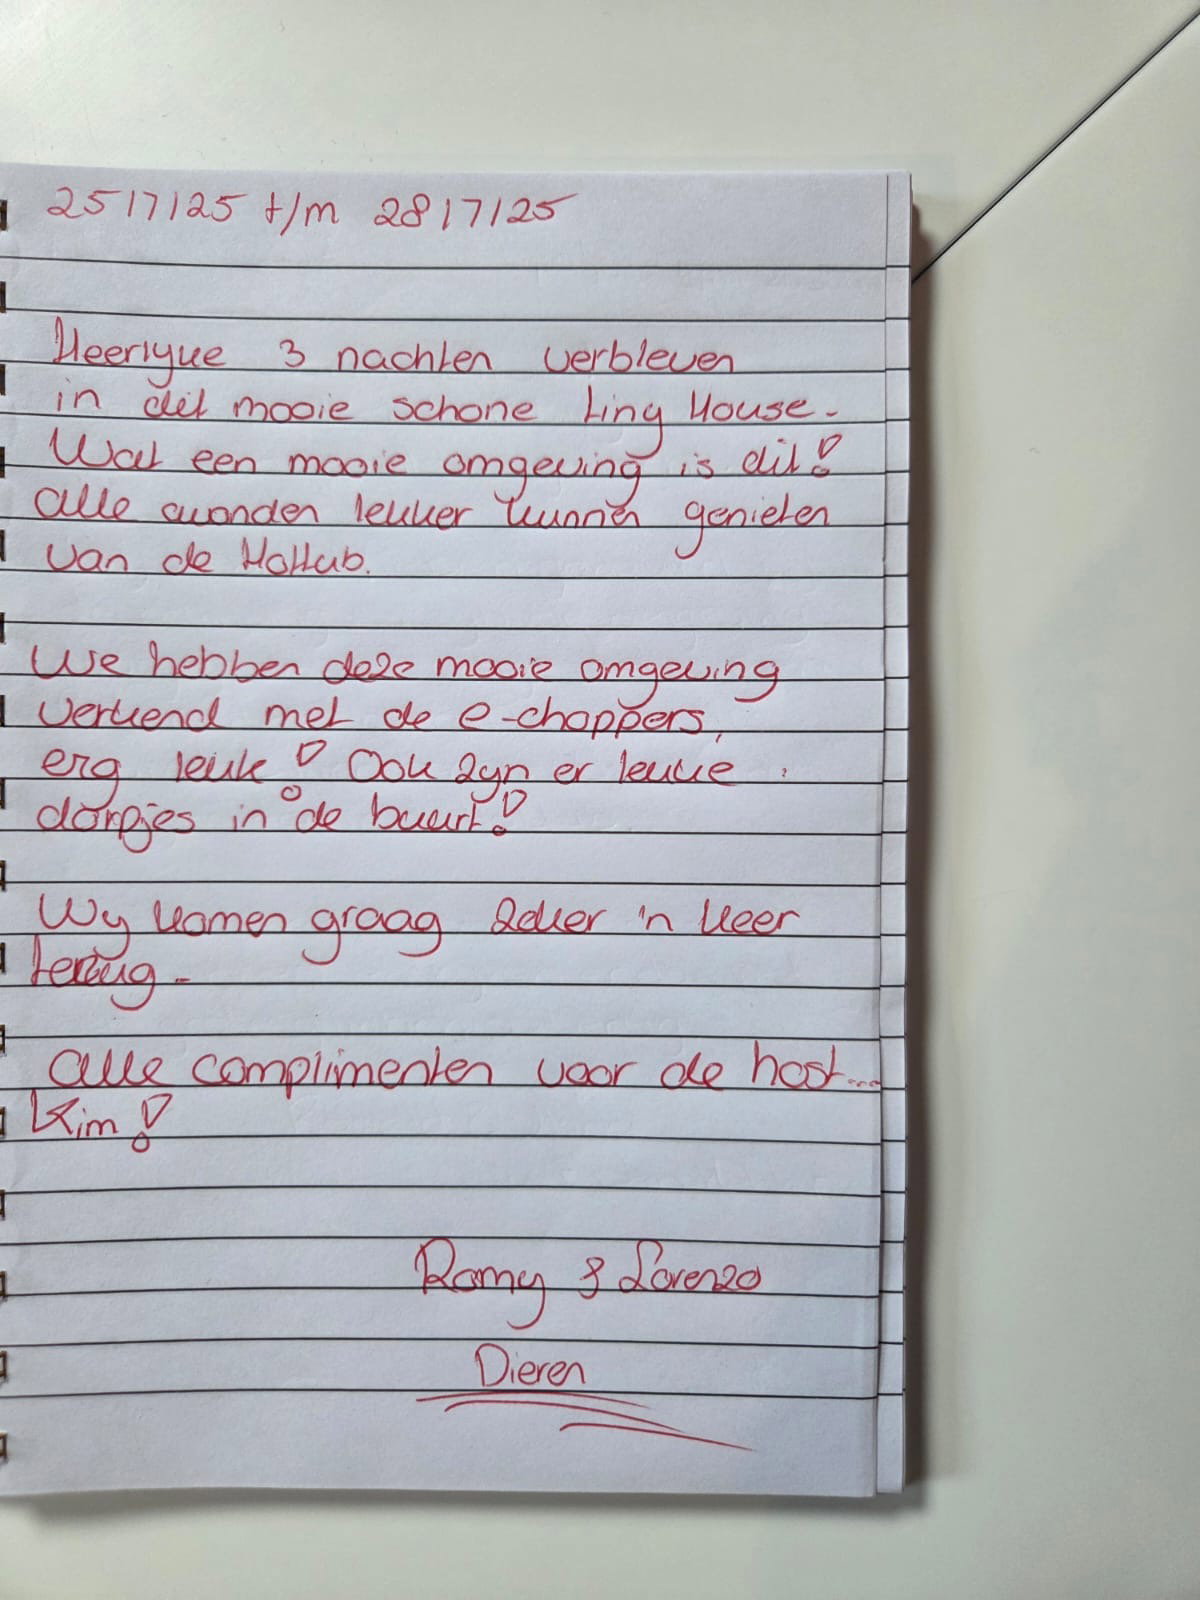 25/7/25 t/m 28/7/25
Heerlyke 3 nachten verbleven
in dit mooie schone Tiny House.
Wat een mooie omgeving is dit!
alle avonden lekker kunnen genieten
van de Hottub.
We hebben deze mooie omgeving
verkend met de e-choppers,
erg leuk! Ook zyn er leuke
dorpjes in de buurt!
Wy komen graag zeker 'n keer
terug.
alle complimenten voor de host...
Kim!
Romy & Lorenzo
Dieren